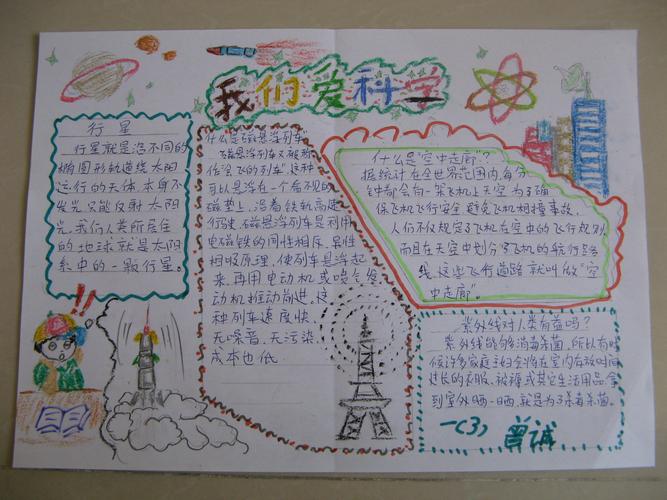 我们爱科学
行星
行星就是沿不同的
椭圆形轨道绕太阳
运行的天体,本身不
发光只能反射太阳
光,我们人类所居住
的地球就是太阳
系中的一颗行星。
什么是"磁悬浮列车"
磁悬浮列车又被称
作"会飞的列车"这种
可以悬浮在一个看不见的
磁垫上,沿着铁轨高速
行驶,磁悬浮列车是利用
电磁铁的同性相斥、异性
相吸原理,使列车悬浮起
来,再用电动机或喷气发
动机推动前进,这
种列车速度快,
无噪音,无污染,
成本也低
什么是"空中走廊"?
据统计在全世界范围内每分
钟都会有一架飞机上天空为了确
保飞机飞行安全,避免飞机相撞事故,
人们不仅规定了飞机在空中的飞行规则
而且在天空中划分了飞机的航行路
线,这些飞行通路就叫做"空
中走廊"。
紫外线对人类有益吗?
紫外线能够消毒杀菌,所以有时
候许多家庭主妇会将在室内存放时间
过长的衣服、被褥或其它生活用品拿
到室外晒一晒,就是为了杀毒杀菌。
一(3) 曾诚